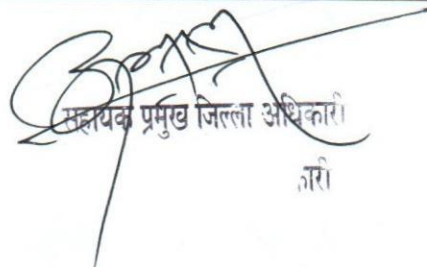 सहायक प्रमुख जिल्ला अधिकारी
ारी